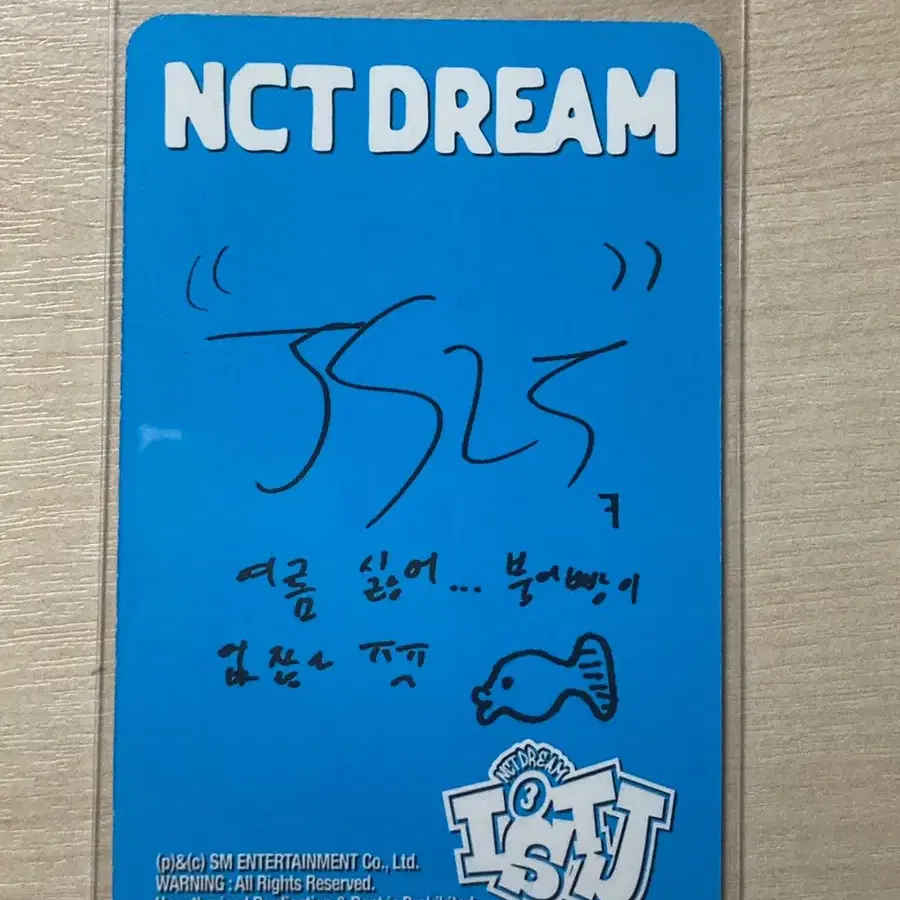 NCT DREAM
여름 싫어... 붕어빵이
없잖아 ㅠㅠ
NCT DREAM
3
ISTJ
(p)&(c) SM ENTERTAINMENT Co., Ltd.
WARNING : All Rights Reserved.